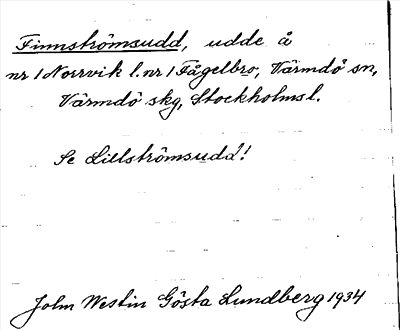 Finnströmsudd, udde å
nr 1 Norrvik l. nr 1 Fågelbro, Värmdö sn,
Värmdö skg, Stockholms l.
Se Lillströmsudd!
John Westin Gösta Lundberg 1934